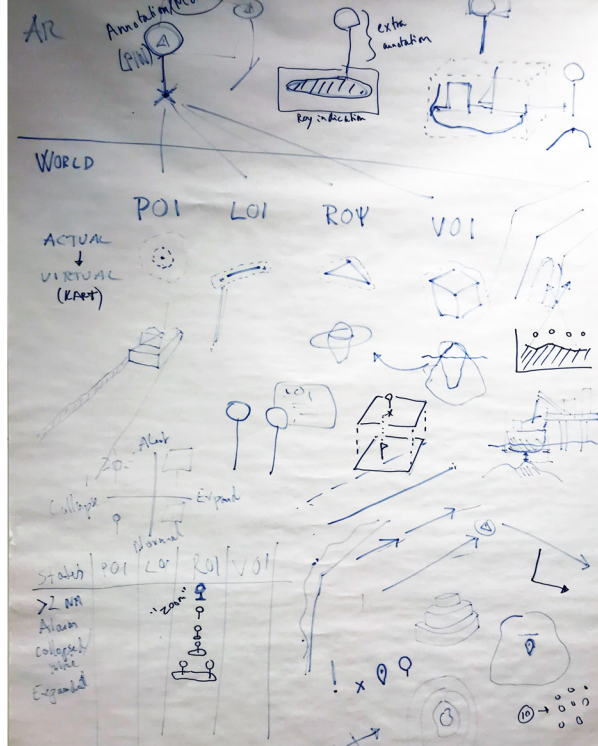 AR
(PIN)
extra
annotation
Roy indication
WORLD
POI LOI ROY VOI
ACTUAL
↓
VIRTUAL
(KART)
VOI
P
Alert
Zoo
Collapse Expand
Normal
Status POI LOI ROI VOI
>2 NM
"Zoom"
Alarm
Collapsed/
Expanded
! x
10 →